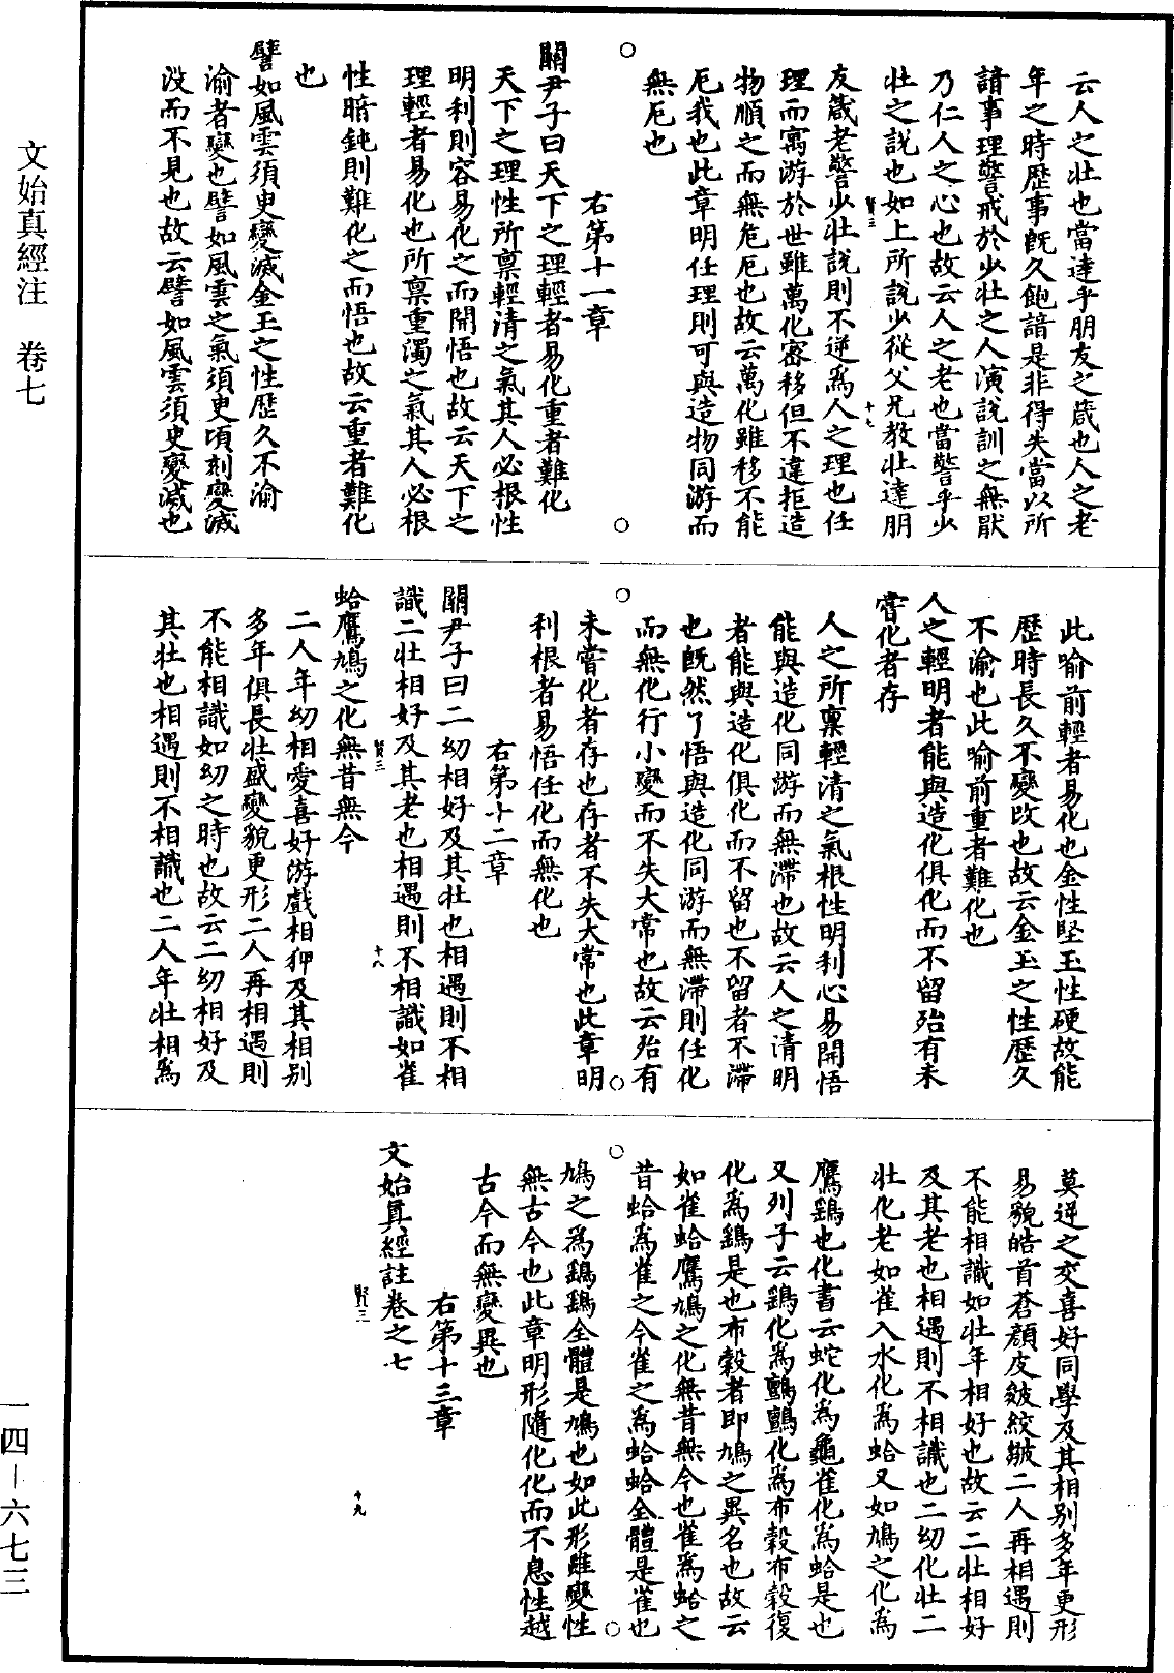 云人之壯也當達乎朋友之箴也人之老
年之時歷事既久飽諳是非得失當以所
諳事理警戒於少壯之人演說訓之無猒
乃仁人之心也故云人之老也當警乎少
壯之說也如上所說少從父兄教壯達朋
友箴老警少壯說則不逆為人之理也任
理而寓游於世雖萬化密移但不違拒造
物順之而無危厄也故云萬化雖移不能
厄我也此章明任理則可與造物同游而
無厄也
右第十一章
關尹子曰天下之理輕者易化重者難化
天下之理性所稟輕清之氣其人必根性
明利則容易化之而開悟也故云天下之
理輕者易化也所稟重濁之氣其人必根
性暗鈍則難化之而悟也故云重者難化
也
譬如風雲須臾變滅金玉之性歷久不渝
渝者變也譬如風雲之氣須臾頃刻變滅
没而不見也故云譬如風雲須臾變滅也
賢三
十七
此喻前輕者易化也金性堅玉性硬故能
歷時長久不變改也故云金玉之性歷久
不渝也此喻前重者難化也
人之輕明者能與造化俱化而不留殆有未
嘗化者存
人之所稟輕清之氣根性明利心易開悟
能與造化同游而無滯也故云人之清明
者能與造化俱化而不留也不留者不滯
也既然了悟與造化同游而無滯則任化
而無化行小變而不失大常也故云殆有
未嘗化者存也存者不失大常也此章明
利根者易悟任化而無化也
右第十二章
關尹子曰二幼相好及其壯也相遇則不相
識二壯相好及其老也相遇則不相識如雀
賢三
十八
蛤鷹鳩之化無昔無今
二人年幼相愛喜好游戲相狎及其相别
多年俱長壯盛變貌更形二人再相遇則
不能相識如幼之時也故云二幼相好及
其壯也相遇則不相識也二人年壯相為
莫逆之交喜好同學及其相别多年更形
易貌皓首蒼顏皮皴紋皺二人再相遇則
不能相識如壯年相好也故云二壯相好
及其老也相遇則不相識也二幼化壯二
壯化老如雀入水化為蛤又如鳩之化為
鷹鷂也化書云蛇化為龜雀化為蛤是也
又列子云鷂化為鸇鸇化為布穀布穀復
化為鷂是也布穀者即鳩之異名也故云
如雀蛤鷹鳩之化無昔無今也雀為蛤之
昔蛤為雀之今雀之為蛤蛤全體是雀也
鳩之為鷂鷂全體是鳩也如此形雖變性
無古今也此章明形隨化化而不息性越
古今而無變異也
右第十三章
文始真經註卷之七
賢三
十九
文始真經注　卷七
一四－六七三